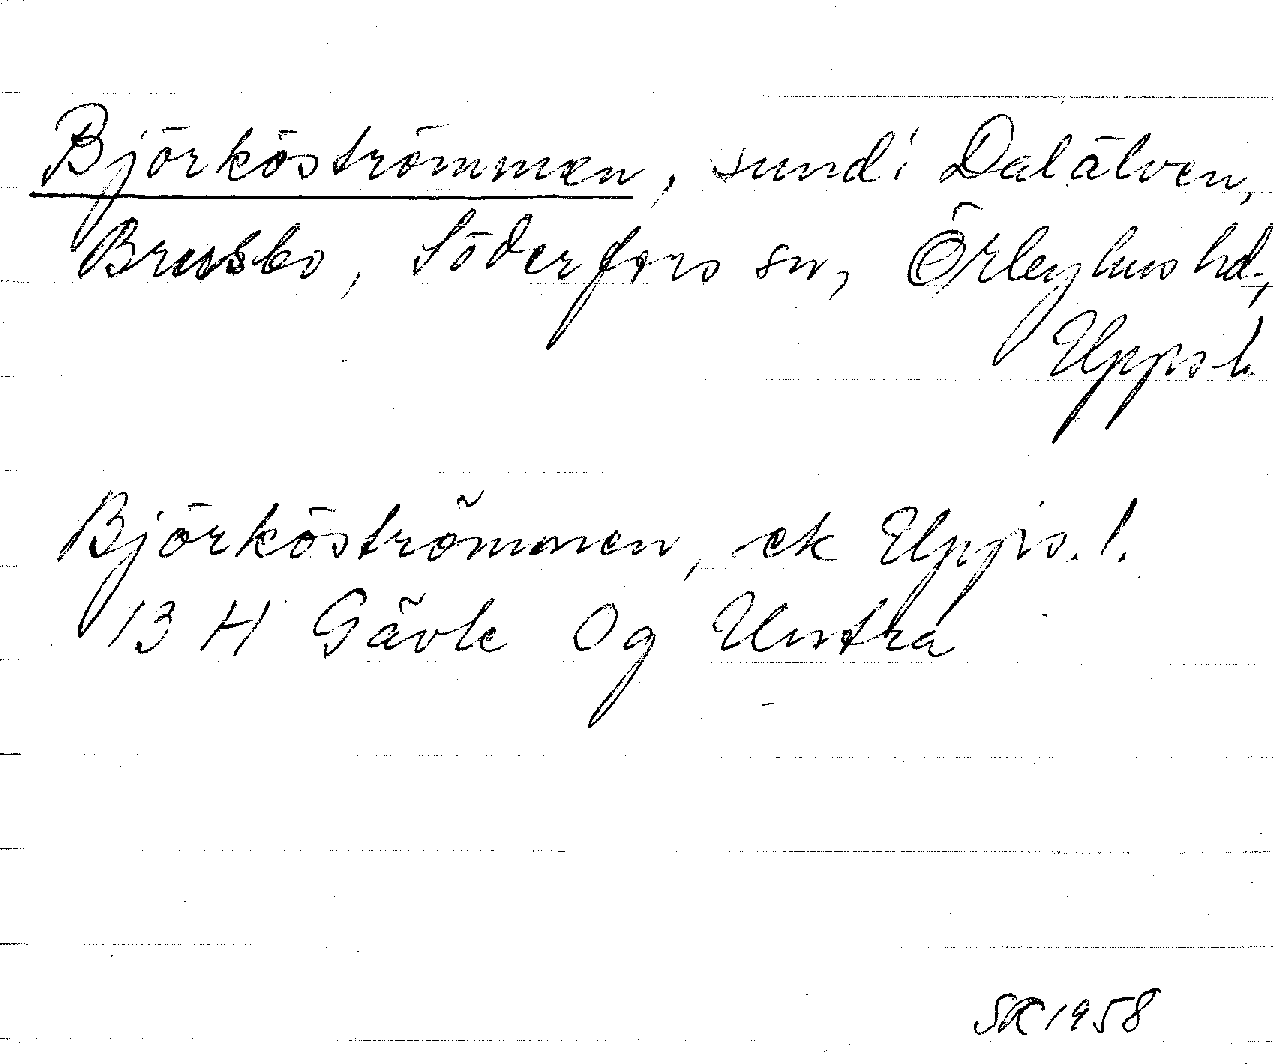 Björköströmmen, sund i Dalälven,
Brusbo, Söderfors sn, Örbyhus hd,
Upps. l.
Björköströmmen, ek Upps. l.
13 H Gävle Og Untra
SR 1958